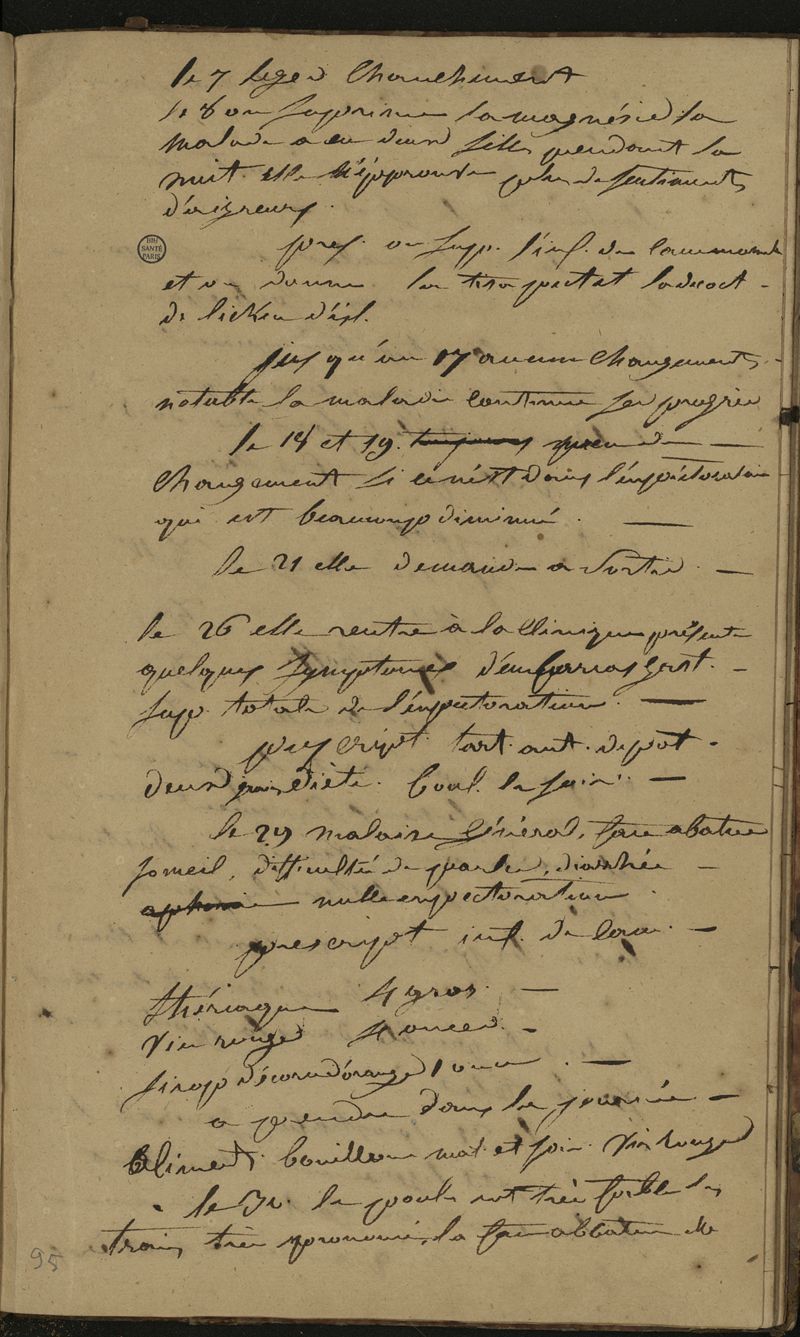 le 7 leger Changement
le 8 on suprime la magnésie la
malade a eu deux selles pendant la
nuit elle n'éprouve plus de sentiments
d'aigreurs.
BIU
SANTÉ
PARIS
pres. on sup. l'inf. de camomil
et on donne la tis. pect. et la decoct
de lichen d'isl.
jusqu'au 17 aucun Changement
notable la maladie continue ses progrès
le 18 et 19. toujours peu de
Changement si ce n'est dans l'expéctoration
qui est beaucoup diminué.
le 21 elle demande a sortir.
le 26 elle rentre à la Clinique présente
quelques symptomes d'embarras gast.
sup. totale de l'expectoration.
prescript. tart. ant. de pot.
deux grains diète. boul. le soir.
le 29 malaise général, face abatue
someil, difficulté de parler, diarrhée
aphonie nulle expectoration.
prescript inf. de
thériaque 4 gros.
Vin rouge 4 onces.
sirop d'écorce d'orange 1 once.
a prendre dans la journée
aliments bouillon mat. et soir Vin rouge
le le pouls est très faible les
traits très prononcés, la face abbatue
95